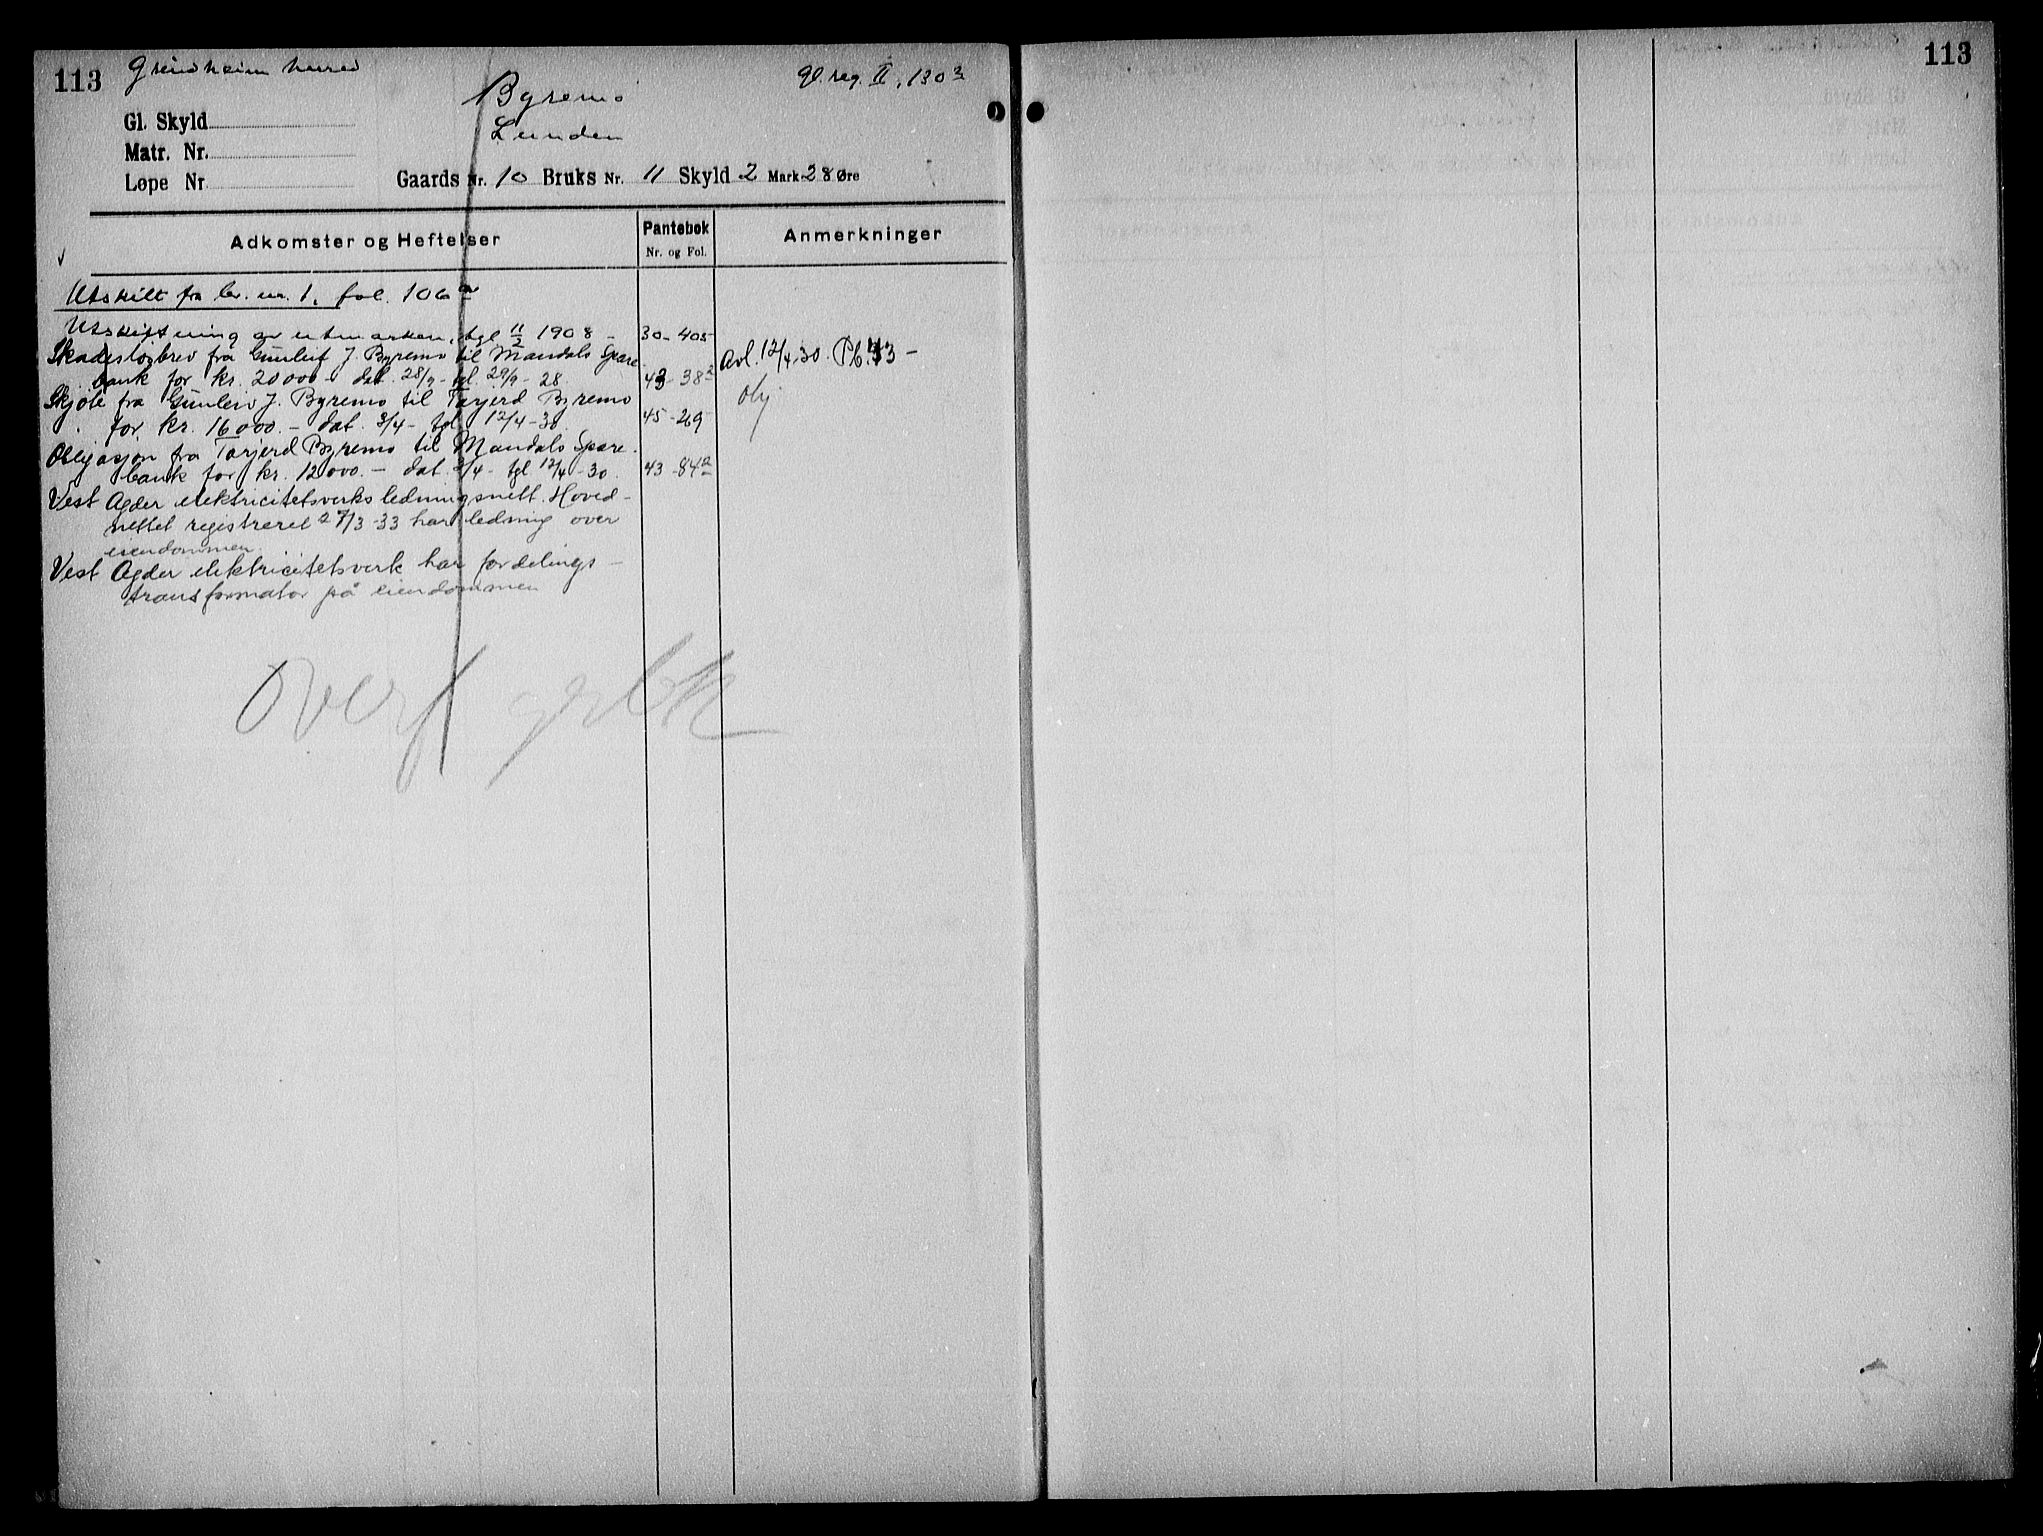 113 Grindheim herred
gl. reg. II, 130
Byremo
Lunden
Gl. Skyld
Matr. Nr.
Løpe Nr
Gaards Nr. 10 Bruks Nr. 11 Skyld 2 Mark 28 Øre
Adkomster og Heftelser
Pantebok
Nr. og Fol.
Anmerkninger
Utskilt fra br. nr. 1, fol. 106
Utskiftning av utmarken, tgl 11/2 1908 - 30 - 405
Skadesløsbrev fra Gunleif J. Byremo til Mandals Spare-
bank for kr. 20000 - dat. 28/9 - tgl. 29/9 - 28. 43 - 38 Avl. 12/4-30. Pb. 43 -
Skjøte fra Gunleiv J. Byremo til Tarjerd Byremo
for kr. 16000. - dat. 3/4 - tgl. 12/4 - 30. 45 - 29
Obligasjon fra Tarjerd Byremo til Mandals Spare-
bank for kr. 12000. - dat. 3/4 - tgl 12/4 - 30. 43 - 84
Vest Agder elektricitetsverks ledningsnett. Hoved-
nettet registreret 27/3-33 har ledning over
eiendommen
Vest Agder elektricitetsverk har fordelings-
transformator på eiendommen
Overf
113